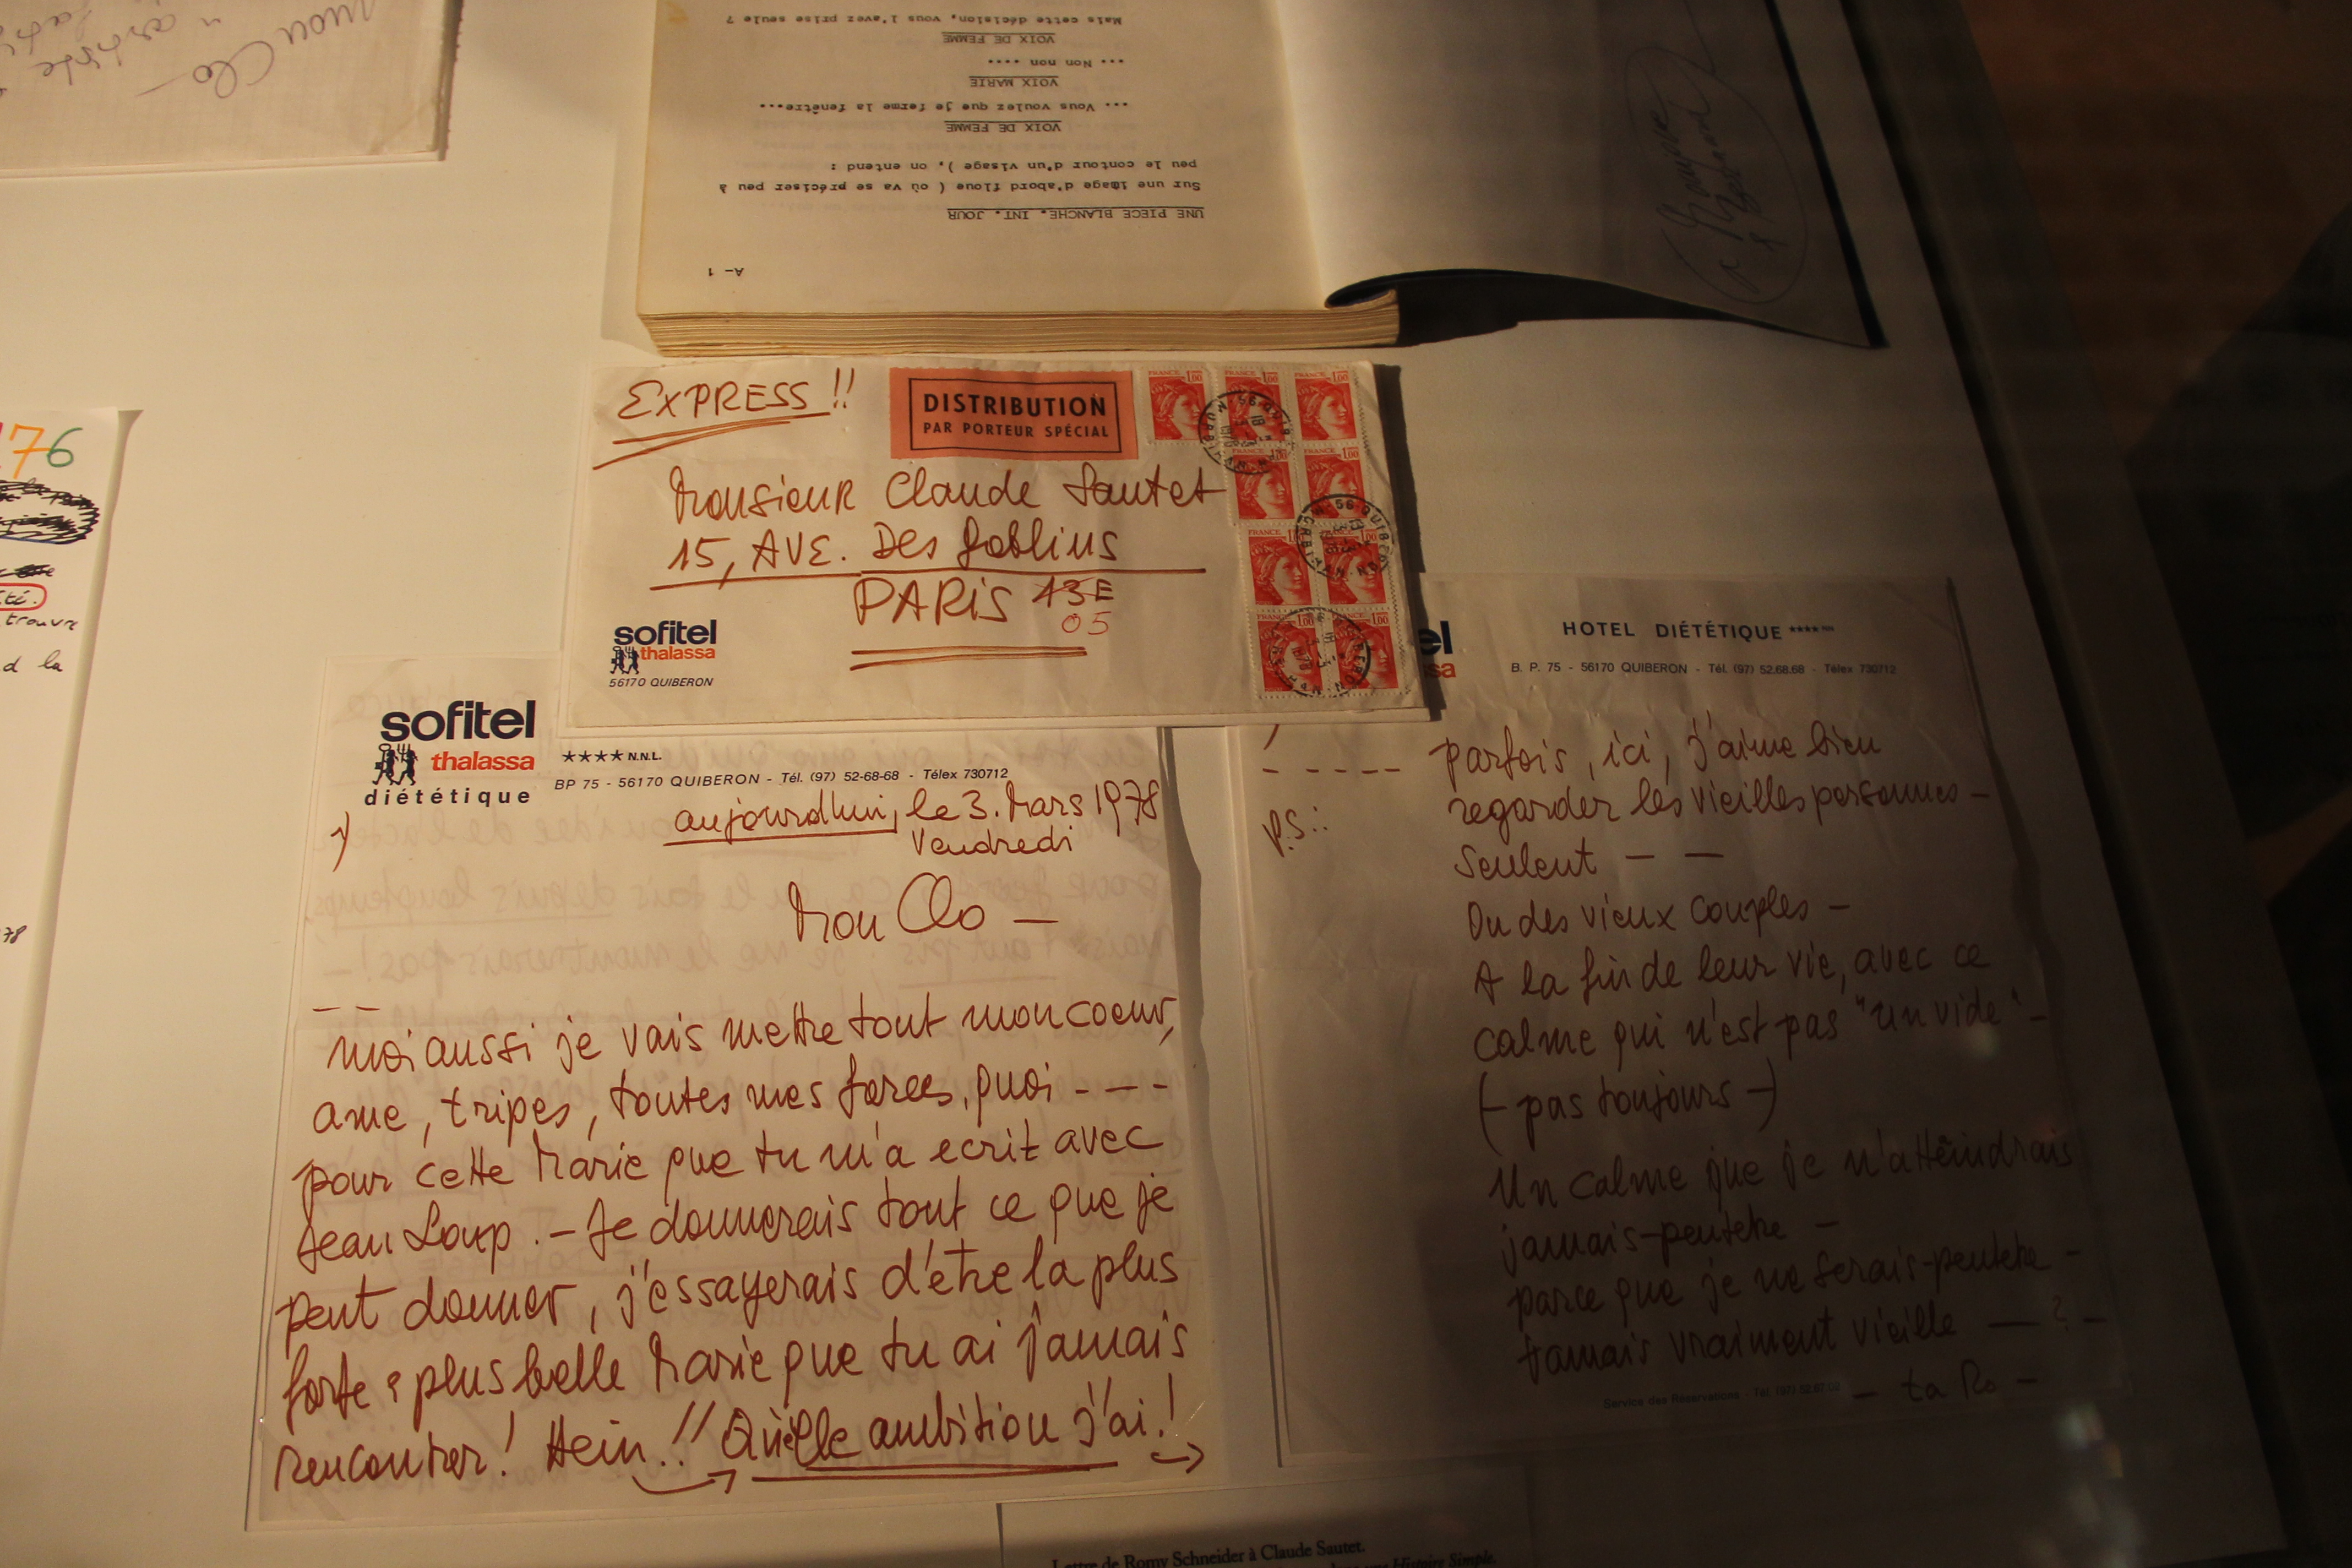 mon Clo
Mais cette décision, vous l'avez prise seule ?
VOIX DE FEMME
... Non non ....
VOIX MARIE
... Vous voulez que je ferme la fenêtre...
VOIX DE FEMME
peu le contour d'un visage ), on entend :
Sur une image d'abord floue ( où va se préciser peu à
UNE PIECE BLANCHE. INT. JOUR
A- 1
EXPRESS !!
DISTRIBUTION
PAR PORTEUR SPÉCIAL
FRANCE 1,00
Monsieur Claude Sautet
15, AVE. Des Goblins
PARIS 13E
05
sofitel
thalassa
56170 QUIBERON
76
té.
trouve
d la
78
sofitel
thalassa
diététique
**** N.N.L.
BP 75 - 56170 QUIBERON - Tél. (97) 52-68-68 - Télex 730712
1)
aujourdhui, le 3. Mars 1978
Vendredi
Mon Clo —
— —
moi aussi je vais mettre tout mon coeur,
ame, tripes, toutes mes forces, quoi - - -
pour cette Marie que tu m'a ecrit avec
Jean Loup . - Je donnerais tout ce que je
peut donner, j'essayerais d'être la plus
forte & plus belle Marie que tu ai jamais
rencontrer ! Hein !! Quelle ambition j'ai !
el
sa
HOTEL DIÉTÉTIQUE ****
B. P. 75 - 56170 QUIBERON - Tél. (97) 52.68.68 - Télex 730712
- - - - -
P.S. :
parfois, ici, j'aime bien
regarder les vieilles personnes —
Seulent — —
Ou des vieux couples —
A la fin de leur vie, avec ce
calme qui n'est pas "un vide" -
(- pas toujours -)
Un calme que je n'attèindrais
jamais-peutetre —
parce que je ne serais-peutetre -
Jamais vraiment vieille — ? -
Service des Réservations - Tél. (97) 52.67.02
— ta Ro —
Lettre de Romy Schneider à Claude Sautet.
une Histoire Simple.